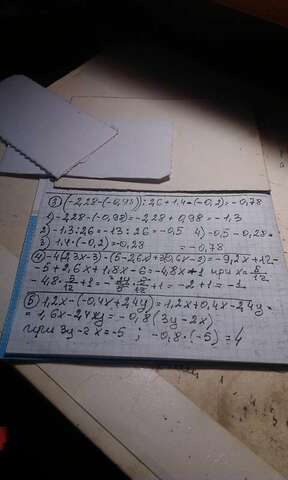 ③ (-2,28-(-0,98)):2,6+1,4·(-0,2)=-0,78
1) -2,28-(-0,98)=-2,28+0,98=-1,3
2) -1,3:2,6=-13:26=-0,5 4) -0,5-0,28=
3) 1,4·(-0,2)=-0,28 =-0,78
④ -4(2,3x-3)-(5-2,6x)+3(0,6x-2)=-9,2x+12-
-5+2,6x+1,8x-6=-4,8x+1 при x=5/12
-4,8·5/12+1=-24/5·5/12+1=-2+1=-1
⑤ 1,2x-(-0,4x+2,4y)=1,2x+0,4x-2,4y=
=1,6x-2,4y=-0,8(3y-2x)
при 3y-2x=-5; -0,8·(-5)=4